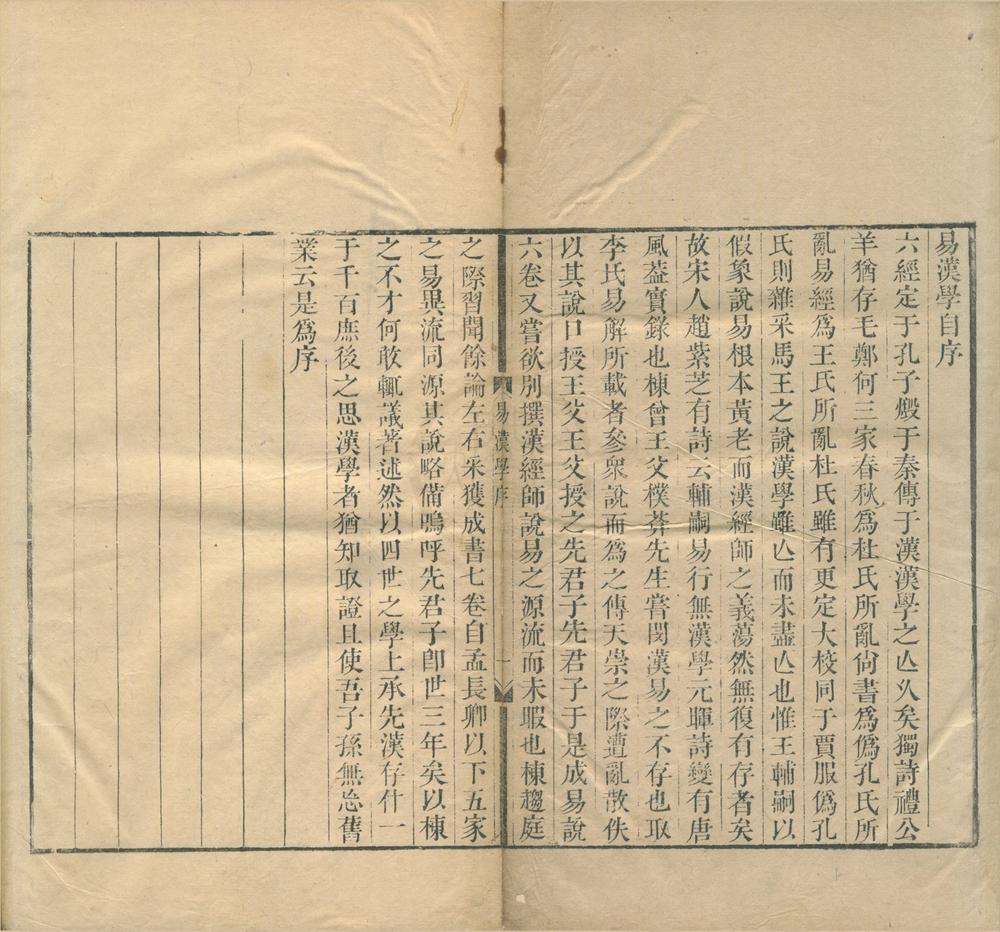 易漢學自序
六經定于孔子燬于秦傳于漢漢學之亾乆矣獨詩禮公
羊猶存毛鄭何三家春秋爲杜氏所亂尙書爲僞孔氏所
亂易經爲王氏所亂杜氏雖有更定大校同于賈服僞孔
氏則雜采馬王之說漢學雖亾而未盡亾也惟王輔嗣以
假象說易根本黃老而漢經師之義蕩然無復有存者矣
故宋人趙紫芝有詩云輔嗣易行無漢學元暉詩變有唐
風葢實錄也棟曾王父樸菴先生嘗閔漢易之不存也取
李氏易解所載者參衆說而爲之傳天崇之際遭亂散佚
以其說口授王父王父授之先君子先君子于是成易說
六卷又嘗欲別撰漢經師說易之源流而未暇也棟趨庭
易漢學序
一
之際習聞餘論左右采獲成書七卷自孟長卿以下五家
之易異流同源其說略備嗚呼先君子卽世三年矣以棟
之不才何敢輒議著述然以四世之學上承先漢存什一
于千百庶後之思漢學者猶知取證且使吾子孫無忘舊
業云是爲序